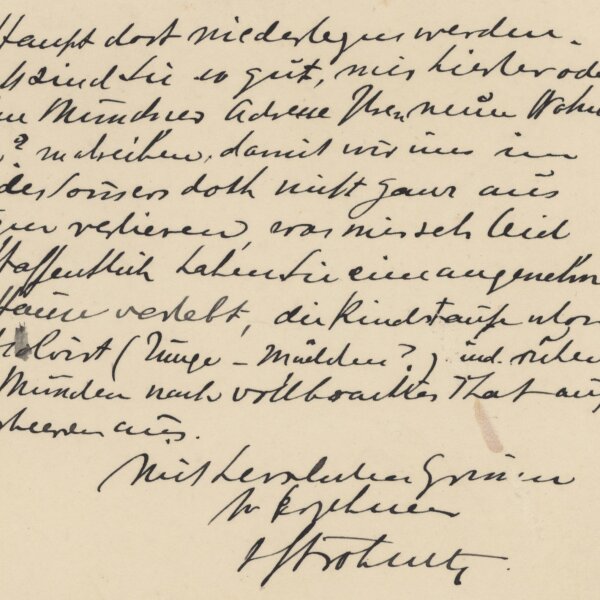 Haupt dort niederlegen werden.
sind Sie so gut, mir hierher ode
Münchner Adresse Ihrer neuen Wohn
? mitteilen, damit wir uns im
des Sommers doch nicht ganz aus
verlieren, was mir sehr leid
Hoffentlich haben Sie eine angenehm
Hause verlebt, die Kindstaufe
(Junge – Mädchen?) und ruhen
München nach vollbrachter That auf
aus.
Mit herzlichen Grüssen
Ihr ergebener